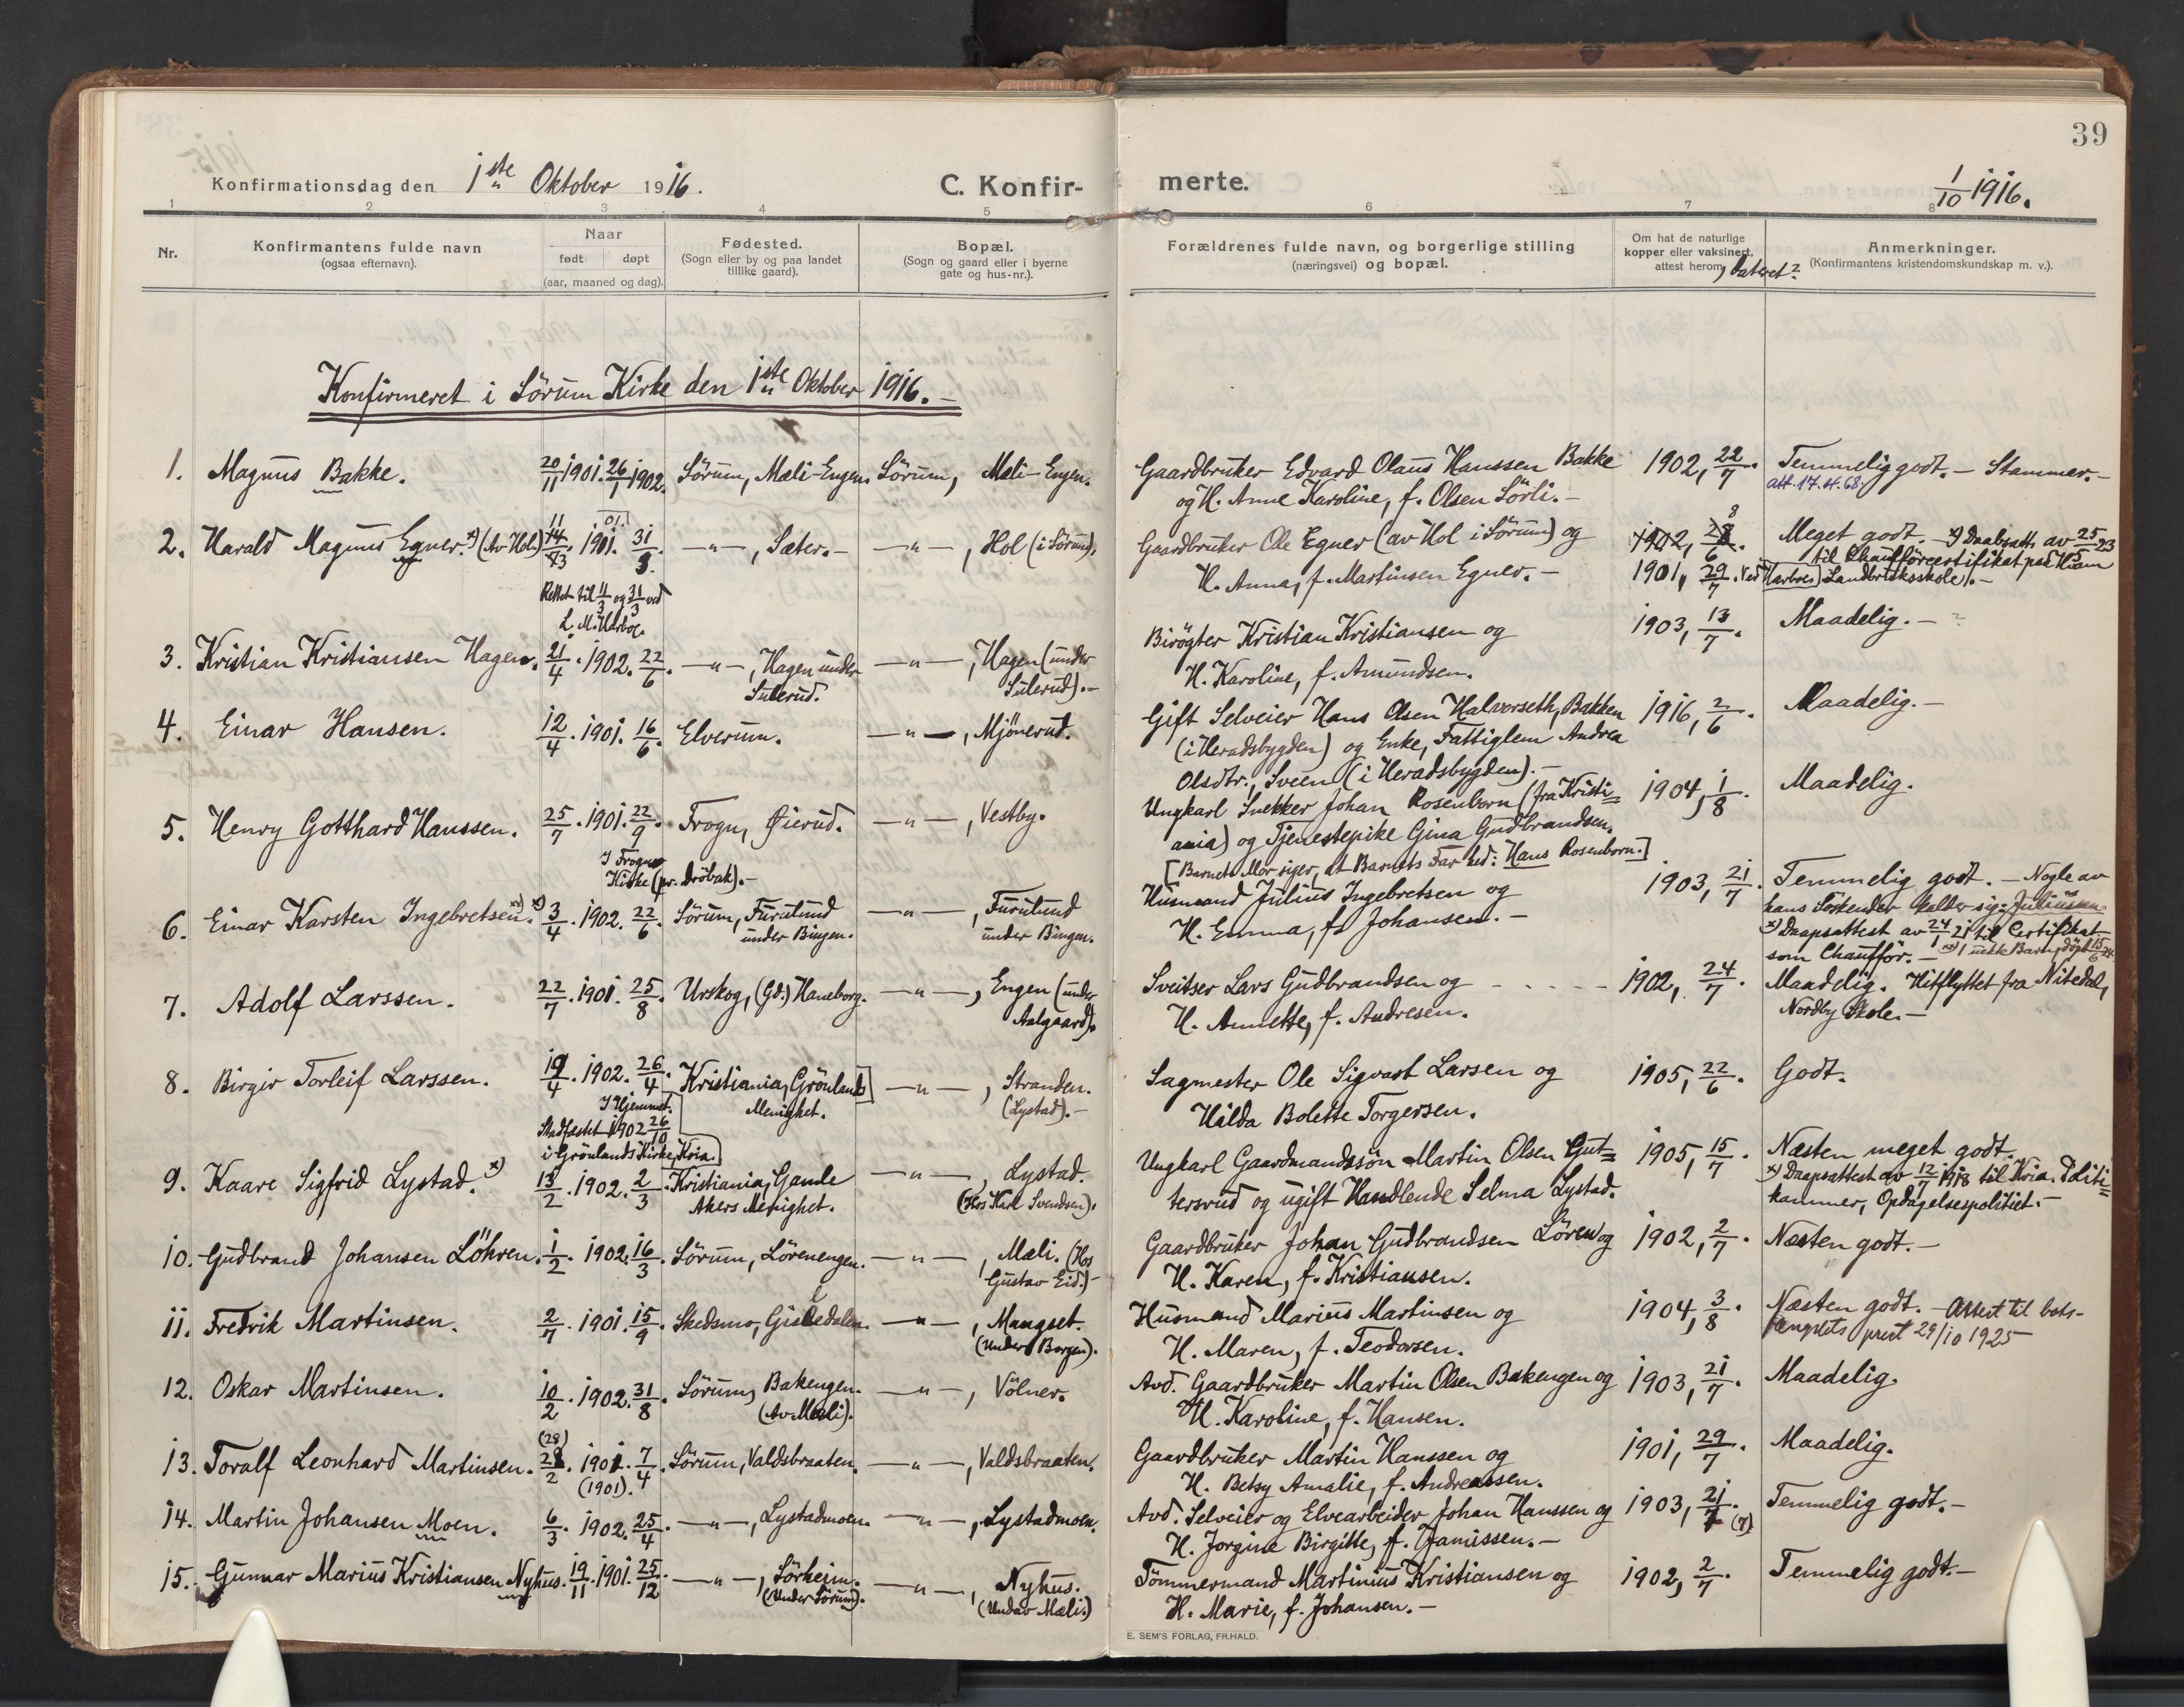 39
Konfirmationsdag den 1ste Oktober 1916.
C. Konfir-
merte.
1/10 1916.
1 2 3 4 5 6 7 8
Nr.
Konfirmantens fulde navn
(ogsaa efternavn).
Naar
født døpt
(aar, maaned og dag).
Fødested.
(Sogn eller by og paa landet
tillike gaard).
Bopæl.
(Sogn og gaard eller i byerne
gate og hus-nr.).
Forældrenes fulde navn, og borgerlige stilling
(næringsvei) og bopæl.
Om hat de naturlige
kopper eller vaksinert,
attest herom, dateret?
Anmerkninger.
(Konfirmantens kristendomskundskap m. v.).
Konfirmeret i Sörum Kirke den 1ste Oktober 1916.-
1. Magnus Bakke. 20/11 1901. 26/1 1902. Sörum, Mæli-Engen. Sörum, Mæli-Engen.
Gaardbruker Edvard Olaus Hanssen Bakke 1902, 22/7. Temmelig godt. - Stammer.-
og H. Anne Karoline, f. Olsen Sörli.- att. 17.4.68.
2. Harald Magnus Egner. x) (Av Hol) 11 14/3. 1901. 01. 31/3. -"-, Sæter.- -"-, Hol (i Sörum).
Rettet til 11/3 og 31/3 ved
L. M. Harboe.
Gaardbruker Ole Egner (av Hol i Sörum) og 1902, 28/6. Meget godt. - x) Daabsatt. av 25/5 23
til Chaufförcertifikat paa Hvam
H. Anna, f. Martinsen Egner.- 1901, 29/7. Ved Harboe) Landbruksskole).-
3. Kristian Kristiansen Hagen. 21/4. 1902. 22/6. -"-, Hagen under
Sulerud. -"-, Hagen (under
Sulerud).-
Birögter Kristian Kristiansen og 1903, 13/7. Maadelig.-
H. Karoline, f. Amundsen.
4. Einar Hansen. 12/4. 1901. 16/6. Elverum. -"-, Mjönerud.
Gift Selveier Hans Olsen Halvorseth, Bakken 1916, 2/6. Maadelig.-
(i Heradsbygden) og Enke, Fattiglem Andrea
Olsdtr., Sveen (i Heradsbygden).-
5. Henry Gotthard Hanssen. 25/7. 1901. 22/9. Frogn, Øierud. -"-, Vestby.
I Frogn
Kirke (pr. Dröbak).-
Ungkarl Snekker Johan Rosenborn (fra Kristi= 1904, 1/8. Maadelig.
ania) og Tjenestepike Gina Gudbrandsen.
[Barnets Mor siger, at Barnets Far hed: Hans Rosenborn.]
6. Einar Karsten Ingebretsen. xx) x) 3/4. 1902. 22/6. Sörum, Furulund
under Bingen. -"-, Furulund
under Bingen.
Husmand Julius Ingebretsen og 1903, 21/7. Temmelig godt. - Nogle av
H. Emma, f. Johansen.- hans Söskender kalder sig: Juliussen
x) Daapsattest av 24/1 21 til Certifikat
som Chaufför. - xx) 1 uekte Barn, döpt 15/6 24
7. Adolf Larssen. 22/7. 1901. 25/8. Urskog, (Gd.) Haneborg. -"-, Engen (under
Aalgaard).
Sveitser Lars Gudbrandsen og - - - - 1902, 24/7. Maadelig. Hitflyttet fra Nitedal,
H. Annette, f. Andresen. Nordby Skole.-
8. Birgir Torleif Larssen. 19/4. 1902. 26/4. Kristiania, Grönlands]
Menighet. -"-, Stranden.
(Lystad).-
I Hjemmet.
Stadfæstet 1902 26/10
i Grönlands Kirke, Kria.
Sagmester Ole Sigvart Larsen og 1905, 22/6. Godt.
Hilda Bolette Torgersen.
9. Kaare Sigfrid Lystad. x) 13/2. 1902. 2/3. Kristiania, Gamle
Akers Menighet. -"-, Lystad.
(Hos Karl Svendsen).
Ungkarl Gaardmandssön Martin Olsen Gut= 1905, 15/7. Næsten meget godt.
tersrud og ugift Handlende Selma Lystad. x) Daapsattest av 12/7 1918 til Kria. Politi=
kammer, Opdagelsespolitiet.-
10. Gudbrand Johansen Löhren. 1/2. 1902. 16/3. Sörum, Lörenengen. -"-, Mæli. (Hos
Gustav Eid.)-
Gaardbruker Johan Gudbrandsen Lören og 1902, 2/7. Næsten godt.-
H. Karen, f. Kristiansen.
11. Fredrik Martinsen. 2/7. 1901. 15/9. Skedsmo, Gisledalen. -"-, Mangset.
(Under Borgen).
Husmand Marius Martinsen og 1904, 3/8. Næsten godt. - Attest til bots-
H. Maren, f. Teodorsen. fængslets prest 29/10 1925
12. Oskar Martinsen. 10/2. 1902. 31/8. Sörum, Bakengen.
(Av Mæli). -"-, Völner.
Avd. Gaardbruker Martin Olsen Bakengen og 1903, 21/7. Maadelig.
H. Karoline, f. Hansen.
13. Toralf Leonhard Martinsen. (28) 28/2. 1901. 7/4. Sörum, Valdsbraaten. -"-, Valdsbraaten.
(1901).
Gaardbruker Martin Hanssen og 1901, 29/7. Maadelig.
H. Betsy Amalie, f. Andreassen.
14. Martin Johansen Moen. 6/3. 1902. 25/4. -"-, Lystadmoen. -"-, Lystadmoen.
Avd. Selveier og Elvearbeider Johan Hanssen og 1903, 21/7. (7) Temmelig godt.-
H. Jorgine Birgitte, f. Jamissen.-
15. Gunnar Marius Kristiansen Nyhus. 19/11. 1901. 25/12. -"-, Sörheim.
(Under Sörum). -"-, Nyhus.
(Under Mæli.)
Tömmermand Martinius Kristiansen og 1902, 2/7. Temmelig godt.-
H. Marie, f. Johansen.-
E. SEM'S FORLAG, FR.HALD.